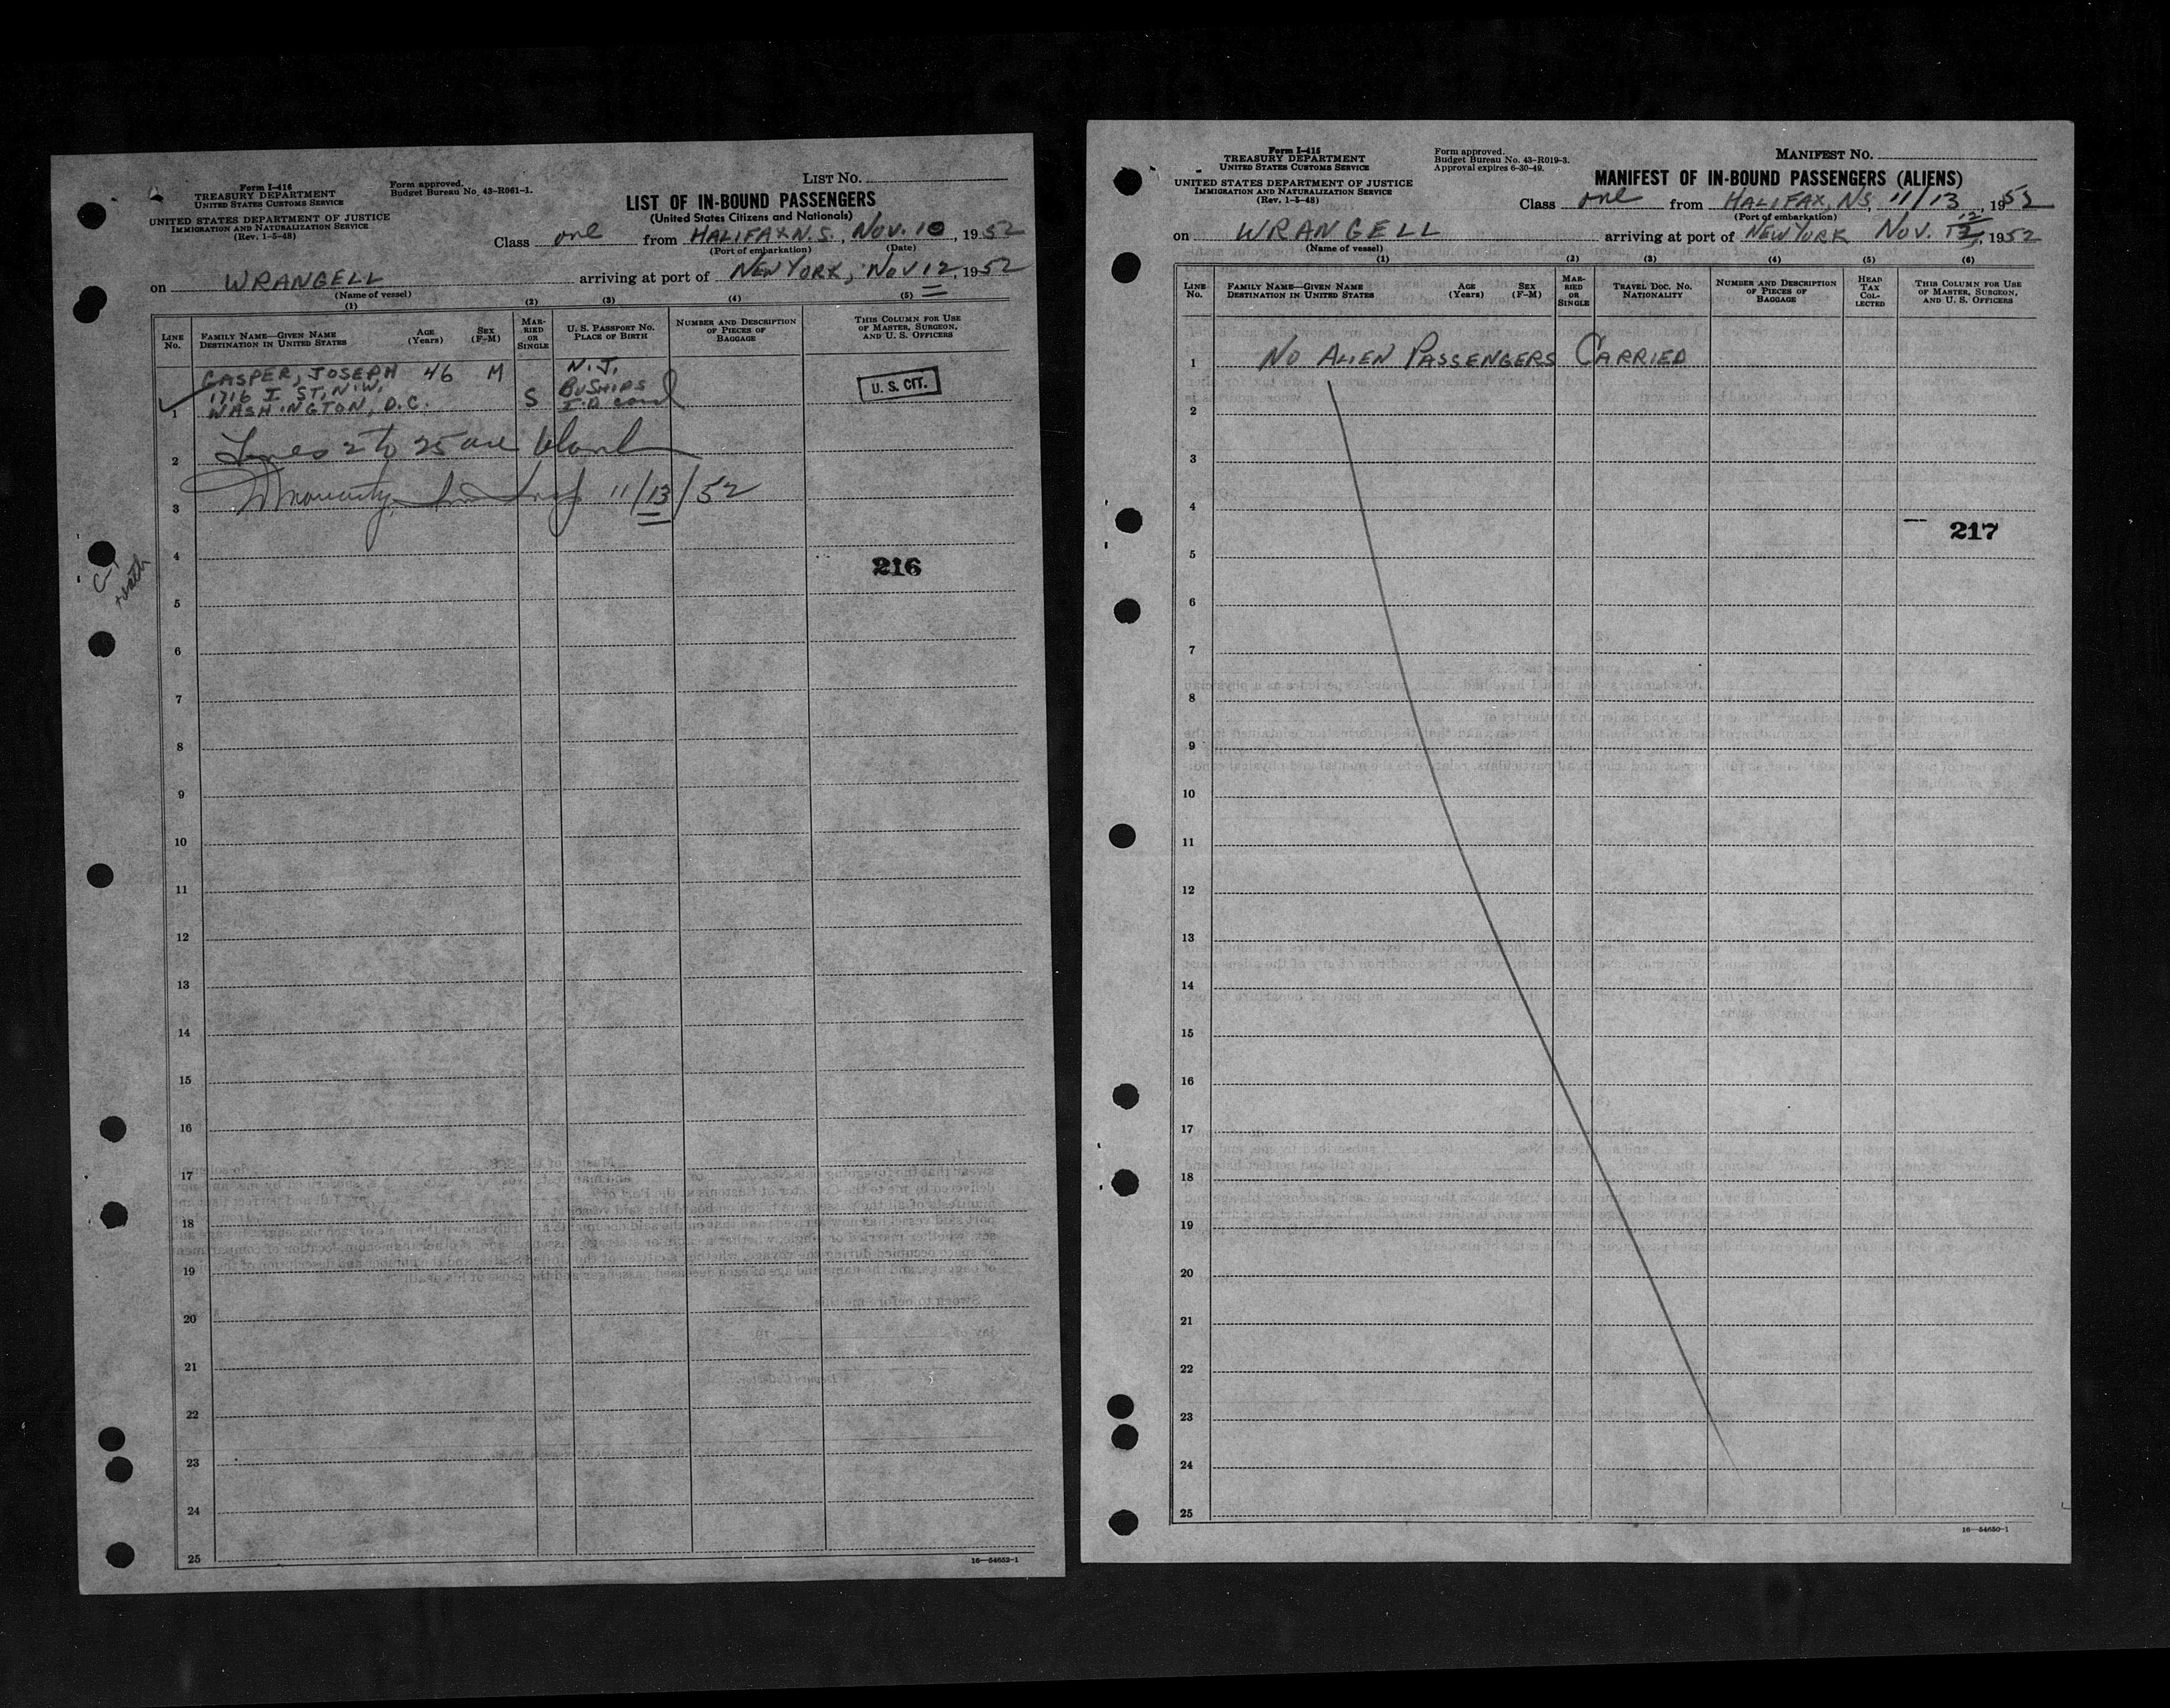 Form I-416
TREASURY DEPARTMENT
UNITED STATES CUSTOMS SERVICE
UNITED STATES DEPARTMENT OF JUSTICE
IMMIGRATION AND NATURALIZATION SERVICE
(Rev. 1-5-48)
Form approved.
Budget Bureau No. 43-R061-1.
LIST NO.
LIST OF IN-BOUND PASSENGERS
(United States Citizens and Nationals)
Class one from HALIFAX N.S., NOV. 10, 1952
(Port of embarkation) (Date)
on WRANGELL arriving at port of NEW YORK, NOV 12, 1952
(Name of vessel)
(1) (2) (3) (4) (5)
LINE No. FAMILY NAME—GIVEN NAME DESTINATION IN UNITED STATES AGE (Years) SEX (F-M) MARRIED OR SINGLE U. S. PASSPORT NO. PLACE OF BIRTH NUMBER AND DESCRIPTION OF PIECES OF BAGGAGE THIS COLUMN FOR USE OF MASTER, SURGEON, AND U. S. OFFICERS
N.J.
CASPER, JOSEPH 46 M
1716 I ST. N.W. BUSHIPS U. S. CIT.
1 WASHINGTON, D.C. S I.D card
2 Lines 2 to 25 are blank
3 11/13/52
4
216
5
6
7
8
9
10
11
12
13
14
15
16
17
18
19
20
21
22
23
24
25
16—54652-1
Form I-415
TREASURY DEPARTMENT
UNITED STATES CUSTOMS SERVICE
UNITED STATES DEPARTMENT OF JUSTICE
IMMIGRATION AND NATURALIZATION SERVICE
(Rev. 1-5-48)
Form approved.
Budget Bureau No. 43-R019-3.
Approval expires 6-30-49.
MANIFEST NO.
MANIFEST OF IN-BOUND PASSENGERS (ALIENS)
Class one from HALIFAX, NS, 11/13, 1952
(Port of embarkation)
on WRANGELL arriving at port of NEW YORK NOV. 12, 1952
(Name of vessel)
(1) (2) (3) (4) (5) (6)
LINE No. FAMILY NAME—GIVEN NAME DESTINATION IN UNITED STATES AGE (Years) SEX (F-M) MARRIED OR SINGLE TRAVEL DOC. NO. NATIONALITY NUMBER AND DESCRIPTION OF PIECES OF BAGGAGE HEAD TAX COLLECTED THIS COLUMN FOR USE OF MASTER, SURGEON, AND U. S. OFFICERS
1 NO ALIEN PASSENGERS CARRIED
2
3
4
217
5
6
7
8
9
10
11
12
13
14
15
16
17
18
19
20
21
22
23
24
25
16—54650-1